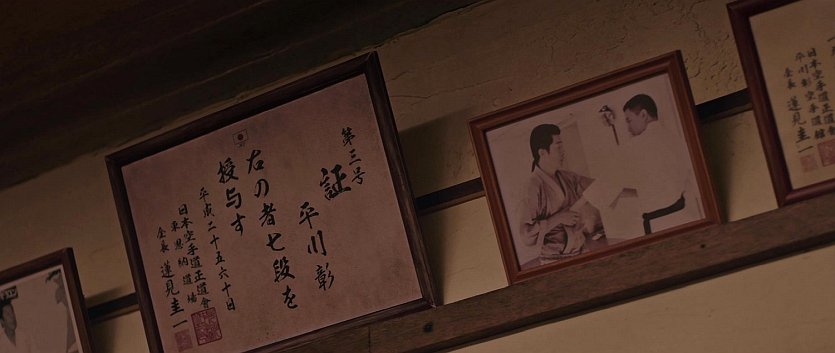 第三号
証
平川彰
右の者七段を
授与す
平成二十五六十日
日本空手道正道會
東恩納道場
会長 蓮見圭一
日本空手道正道
平川彰空手道館
会長 蓮見圭